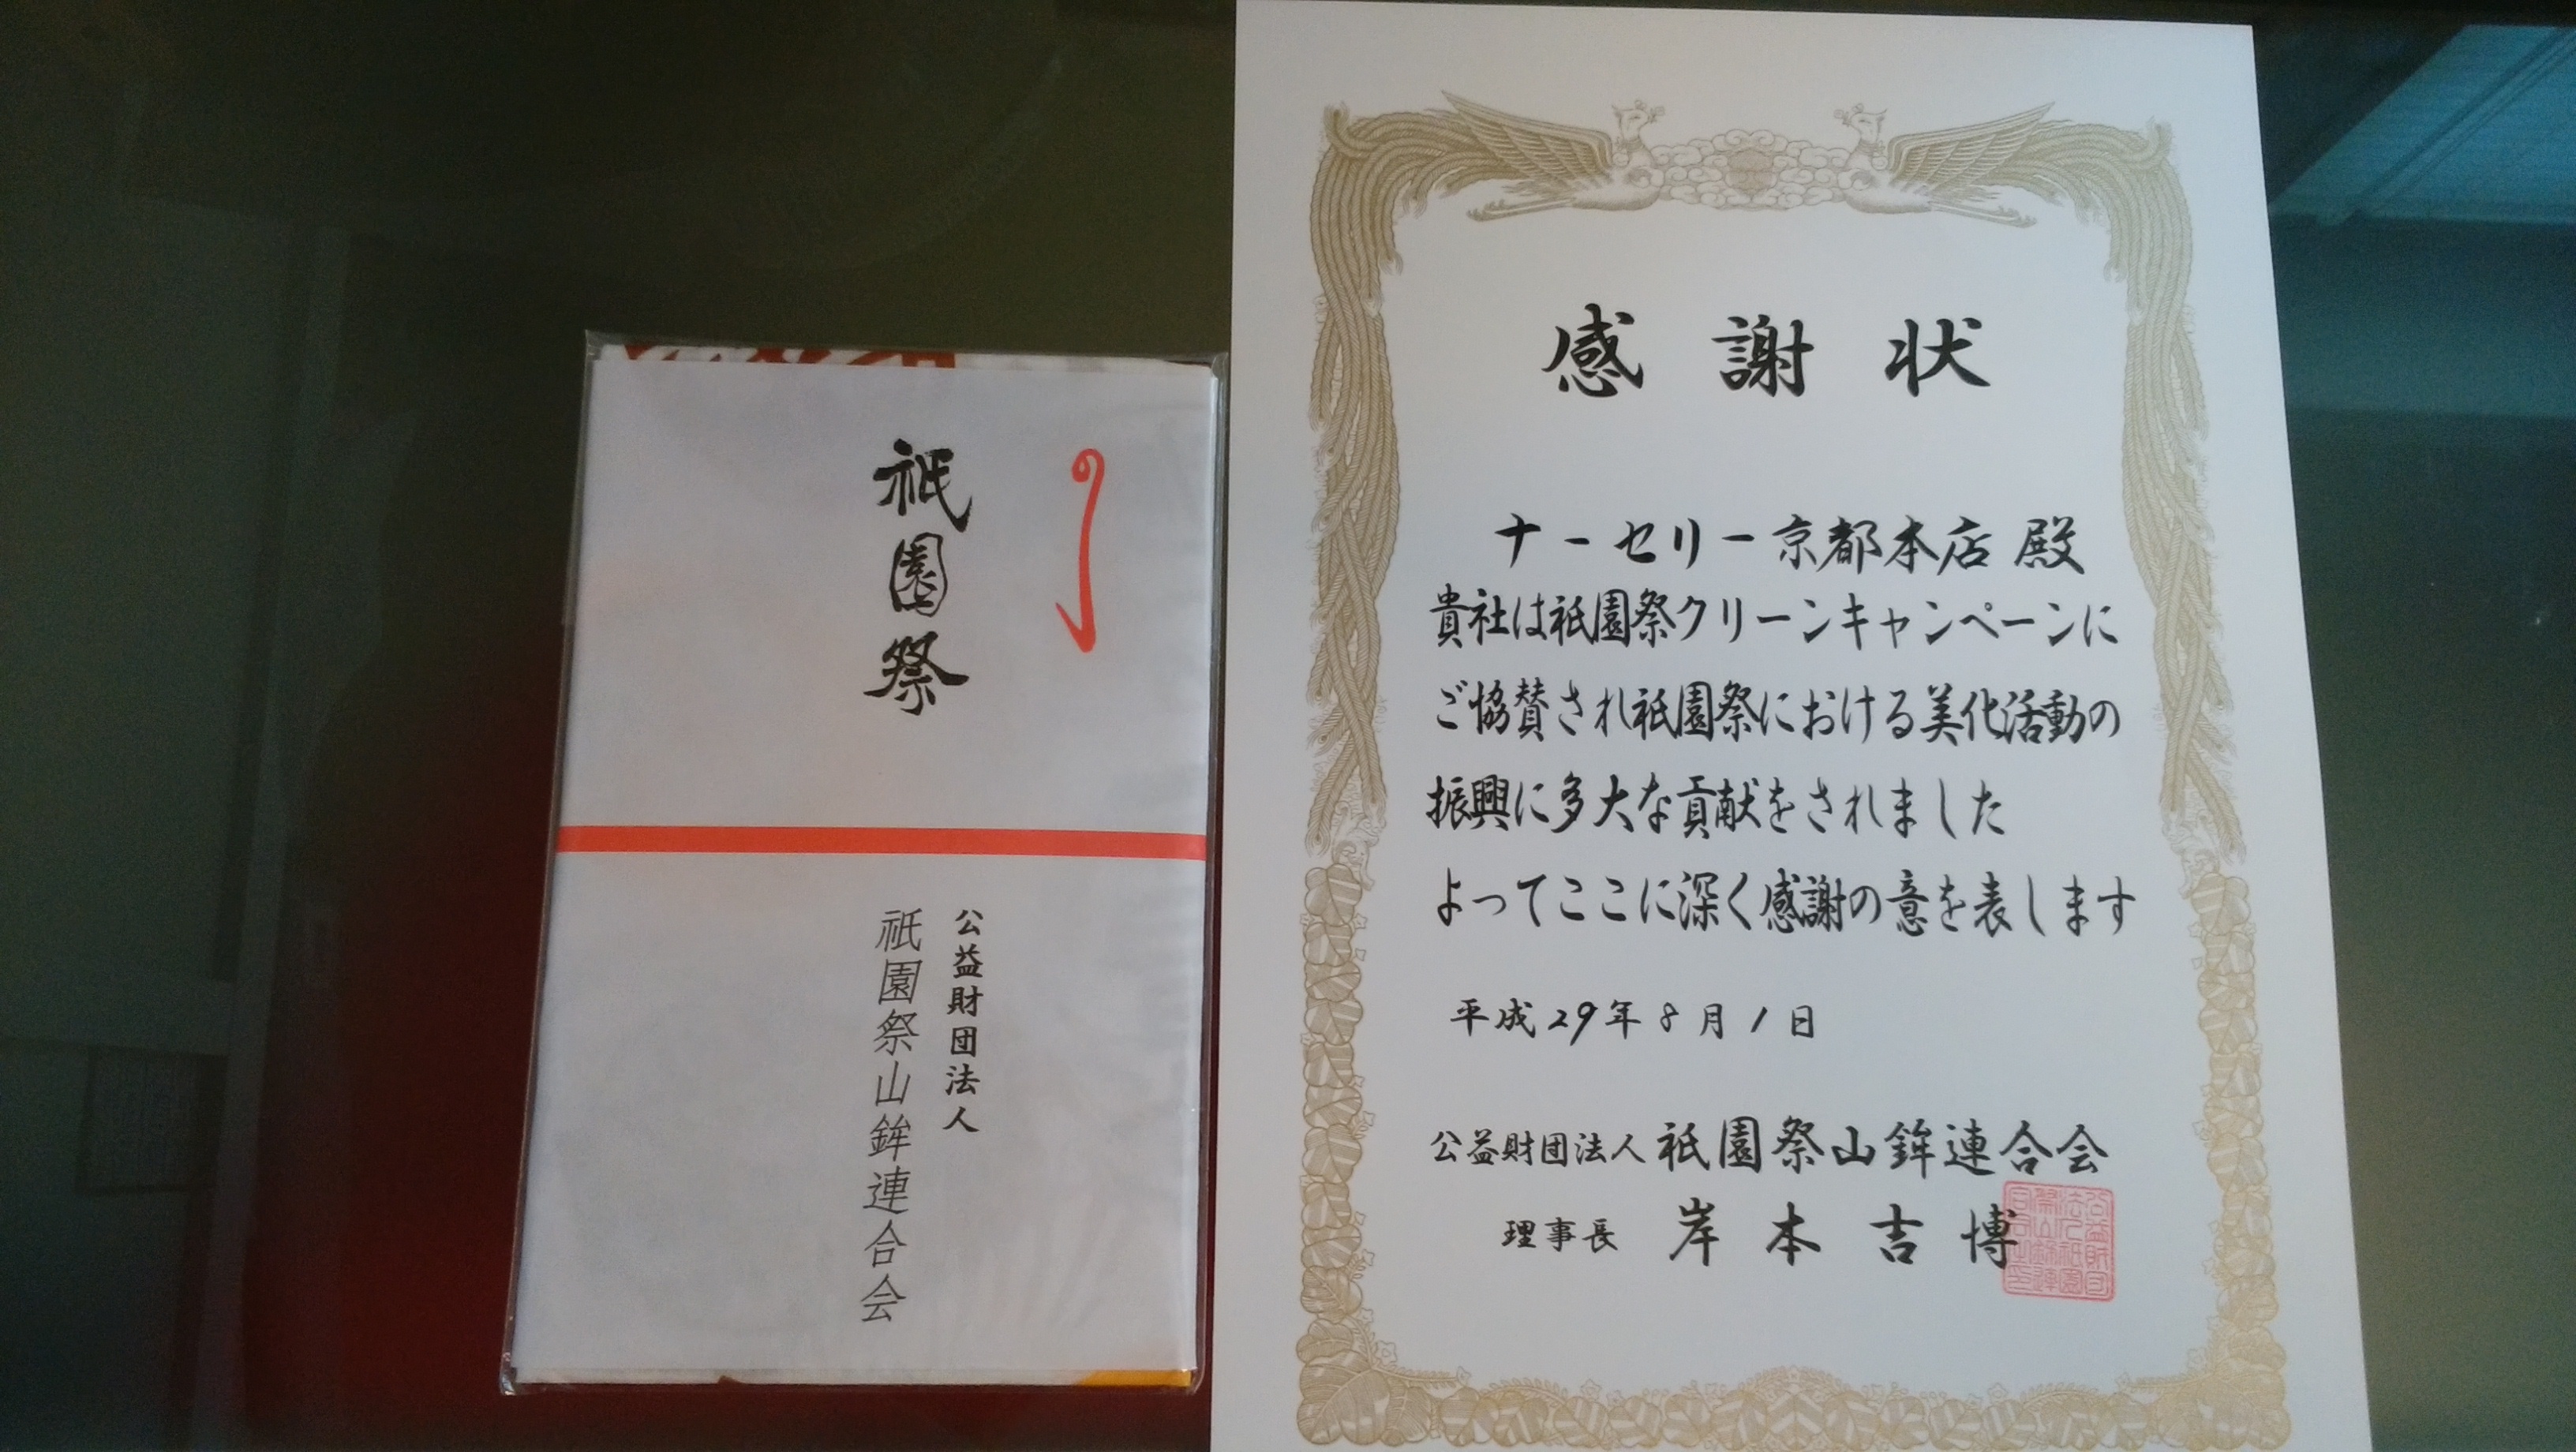 祇園祭
公益財団法人
祇園祭山鉾連合会
感謝状
ナーセリー京都本店 殿
貴社は祇園祭クリーンキャンペーンに
ご協賛され祇園祭における美化活動の
振興に多大な貢献をされました
よってここに深く感謝の意を表します
平成29年8月1日
公益財団法人 祇園祭山鉾連合会
理事長 岸本吉博